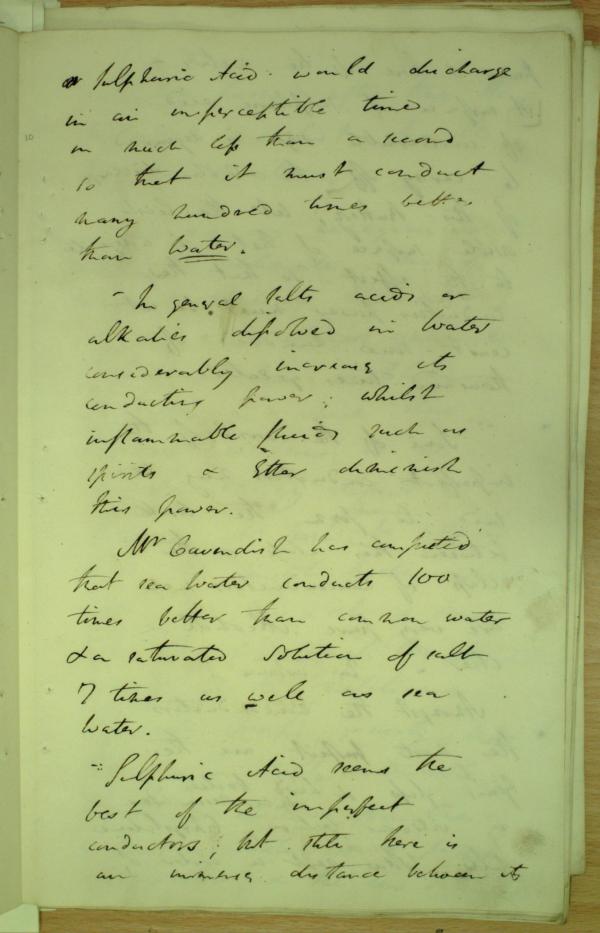 Sulphuric Acid would discharge
in an imperceptible time
in much less than a second
so that it must conduct
many hundred times better
than water.
- In general salts acids or
alkalies dissolved in Water
considerably increase its
conducting power; whilst
inflammable fluids such as
spirits & Ether diminish
this power.
Mr Cavendish has computed
that sea Water conducts 100
times better than common water
& a saturated Solution of salt
7 times as well as sea
Water.
- Sulphuric Acid seems the
best of the imperfect
conductors; but still there is
an immense distance between its